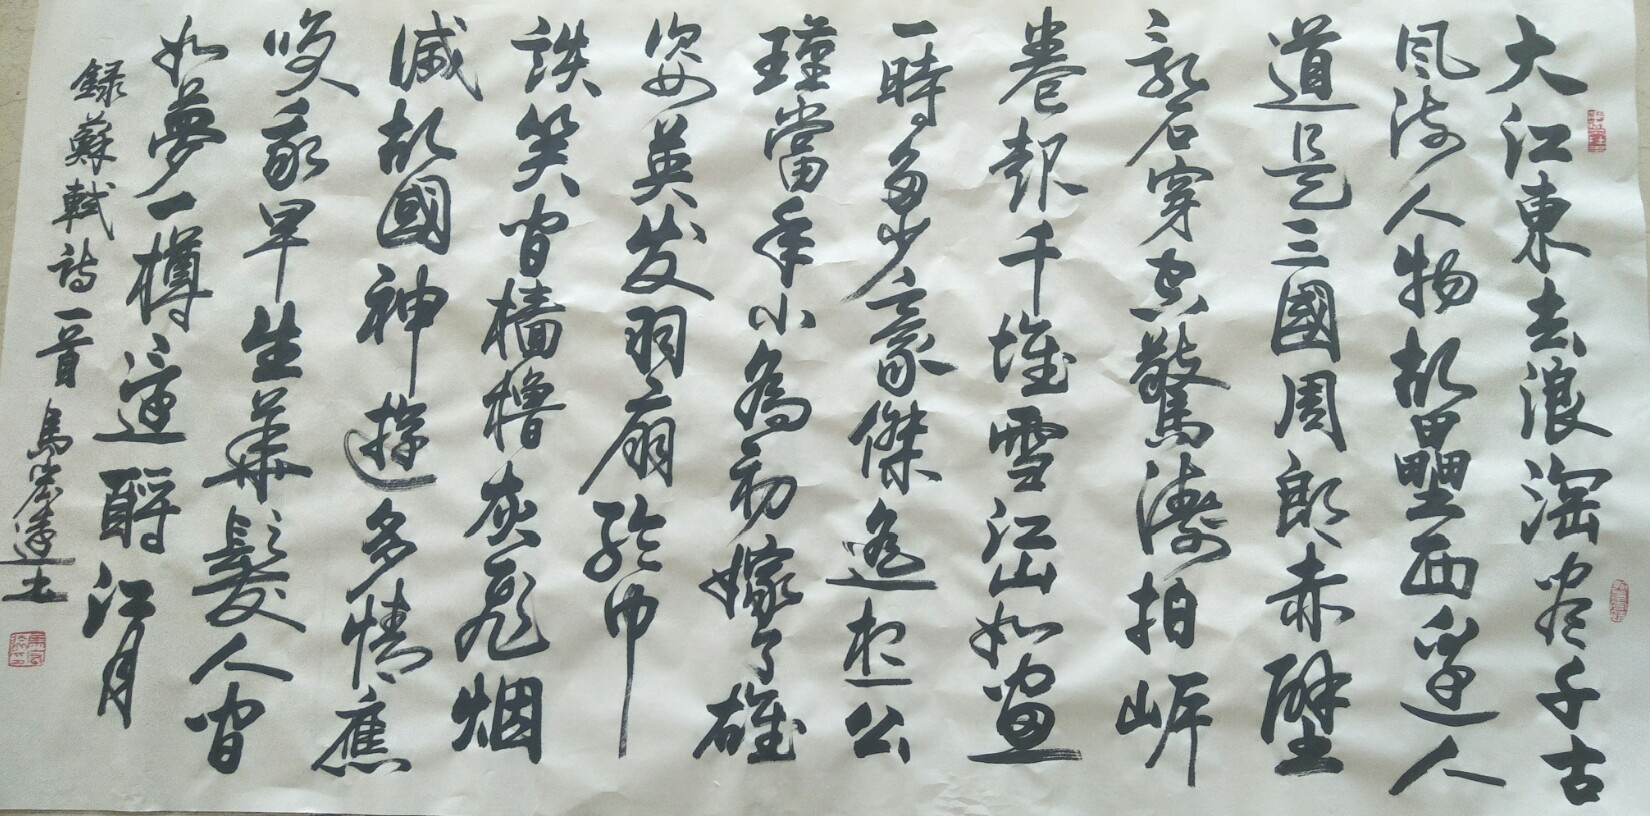 大江東去浪淘尽千古
风流人物故壘西邊人
道是三國周郎赤壁
乱石穿空驚濤拍岸
卷起千堆雪江山如画
一時多少豪傑遙想公
瑾當年小喬初嫁了雄
姿英发羽扇綸巾
談笑间檣櫓灰飛烟
滅故國神遊多情應
咲我早生華髮人间
如夢一樽還酹江月
録蘇軾诗一首 馬